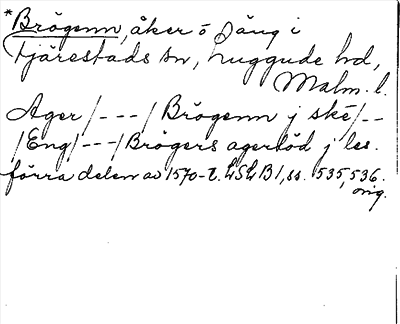 *Brögenn, åker o äng i
Fjärestads sn, Luggude hd,
Malm. l.
Ager /---/ Brögenn j ske /--
/Eng/---/ Brögers agerlöd j les.
förra delen av 1570-t. LSLB1, ss. 535, 536.
orig.